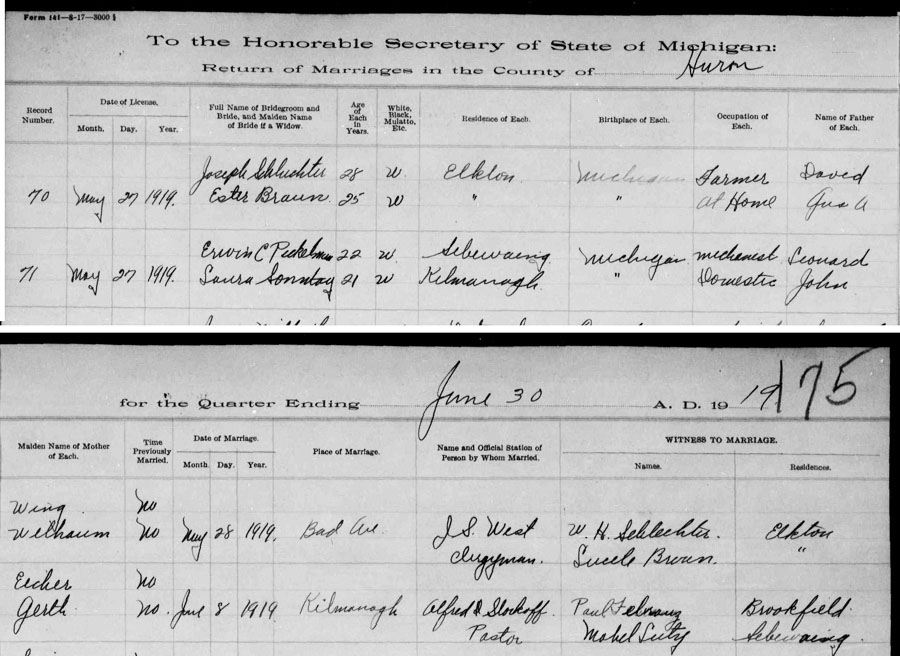 Form 141—8-17—3000
To the Honorable Secretary of State of Michigan:
Return of Marriages in the County of Huron
Record Number.
Date of License.
Month. Day. Year.
Full Name of Bridegroom and Bride, and Maiden Name of Bride if a Widow.
Age of Each in Years.
White, Black, Mulatto, Etc.
Residence of Each.
Birthplace of Each.
Occupation of Each.
Name of Father of Each.
Joseph Schluchter 28 W. Elkton Michigan Farmer David
70 May 27 1919. Ester Braun. 25 W " " At Home Gus A
Erwin C 22 W. Sebewaing Michigan Leonard
71 May 27 1919. Laura Sonntag 21 W Kilmanagh " Domestic John
for the Quarter Ending June 30 A. D. 1919
175
Maiden Name of Mother of Each.
Time Previously Married.
Date of Marriage.
Month. Day. Year.
Place of Marriage.
Name and Official Station of Person by Whom Married.
WITNESS TO MARRIAGE.
Names.
Residences.
Wing No
No May 28 1919. Bad Axe. J. S. West W. H. Schlechter. Elkton
Clergyman. Braun. "
Eicher No
Gerth No. June 8 1919 Kilmanagh Alfred Paul Brookfield
Pastor Mabel Sebewaing.